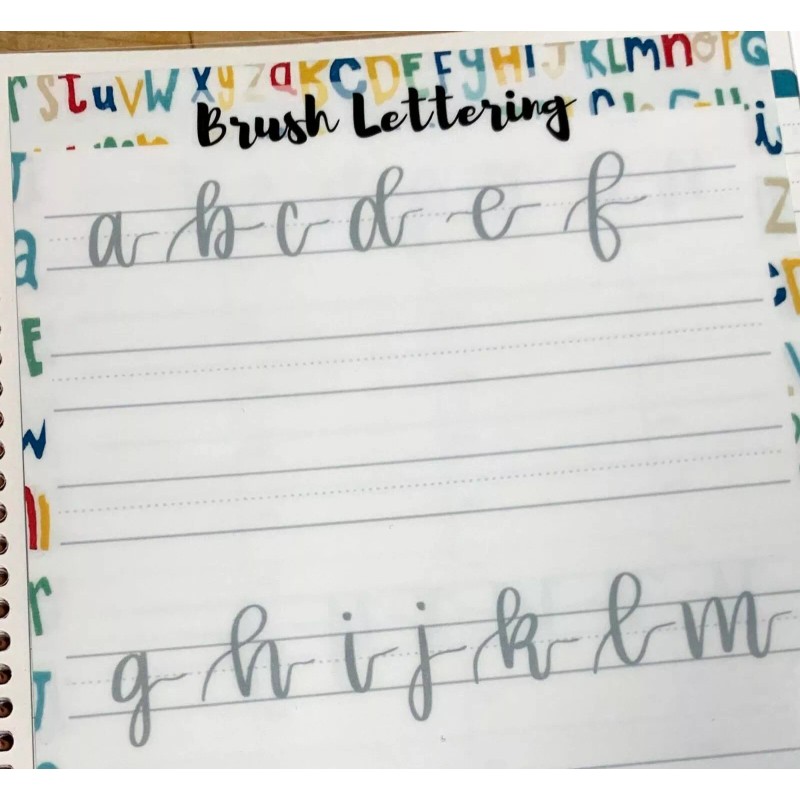 r s t u v w x y z a B C D E F g H I J K L m n o p G
Brush Lettering
a b c d e f
g h i j k l m